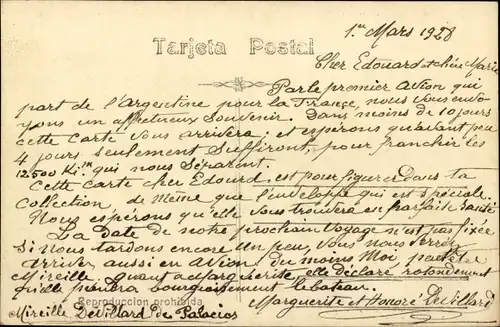 1er Mars 1928
Tarjeta Postal
Cher Edouard et chère Marie
Par le premier avion qui
part de l'Argentine pour la France, nous vous envo-
yons un affectueux souvenir. Dans moins de 10 jours
cette carte vous arrivera; et espirons qu'avant peu
4 jours seulement suffiront, pour franchir les
12500 Kim qui nous séparent.
Cette carte cher Edourd, est pour figurer dans ta
collection, de meme que l'enveloppe qui est spéciale.
Nous espirons qu'elle vous trouvera en parfaite santé
La date de notre prochain voyage n'est pas fixée
Si nous tardons encore un peu, vous nous verrez
arriver aussi en avion du moins Moi peut ete
Mireille, quant a Marguerite elle déclare rotondement
qu'elle prendra bourgeoisement le bateau.
Reproduccion prohibida
Marguerite et Honoré Devillard
Mireille Devillard de Palacios